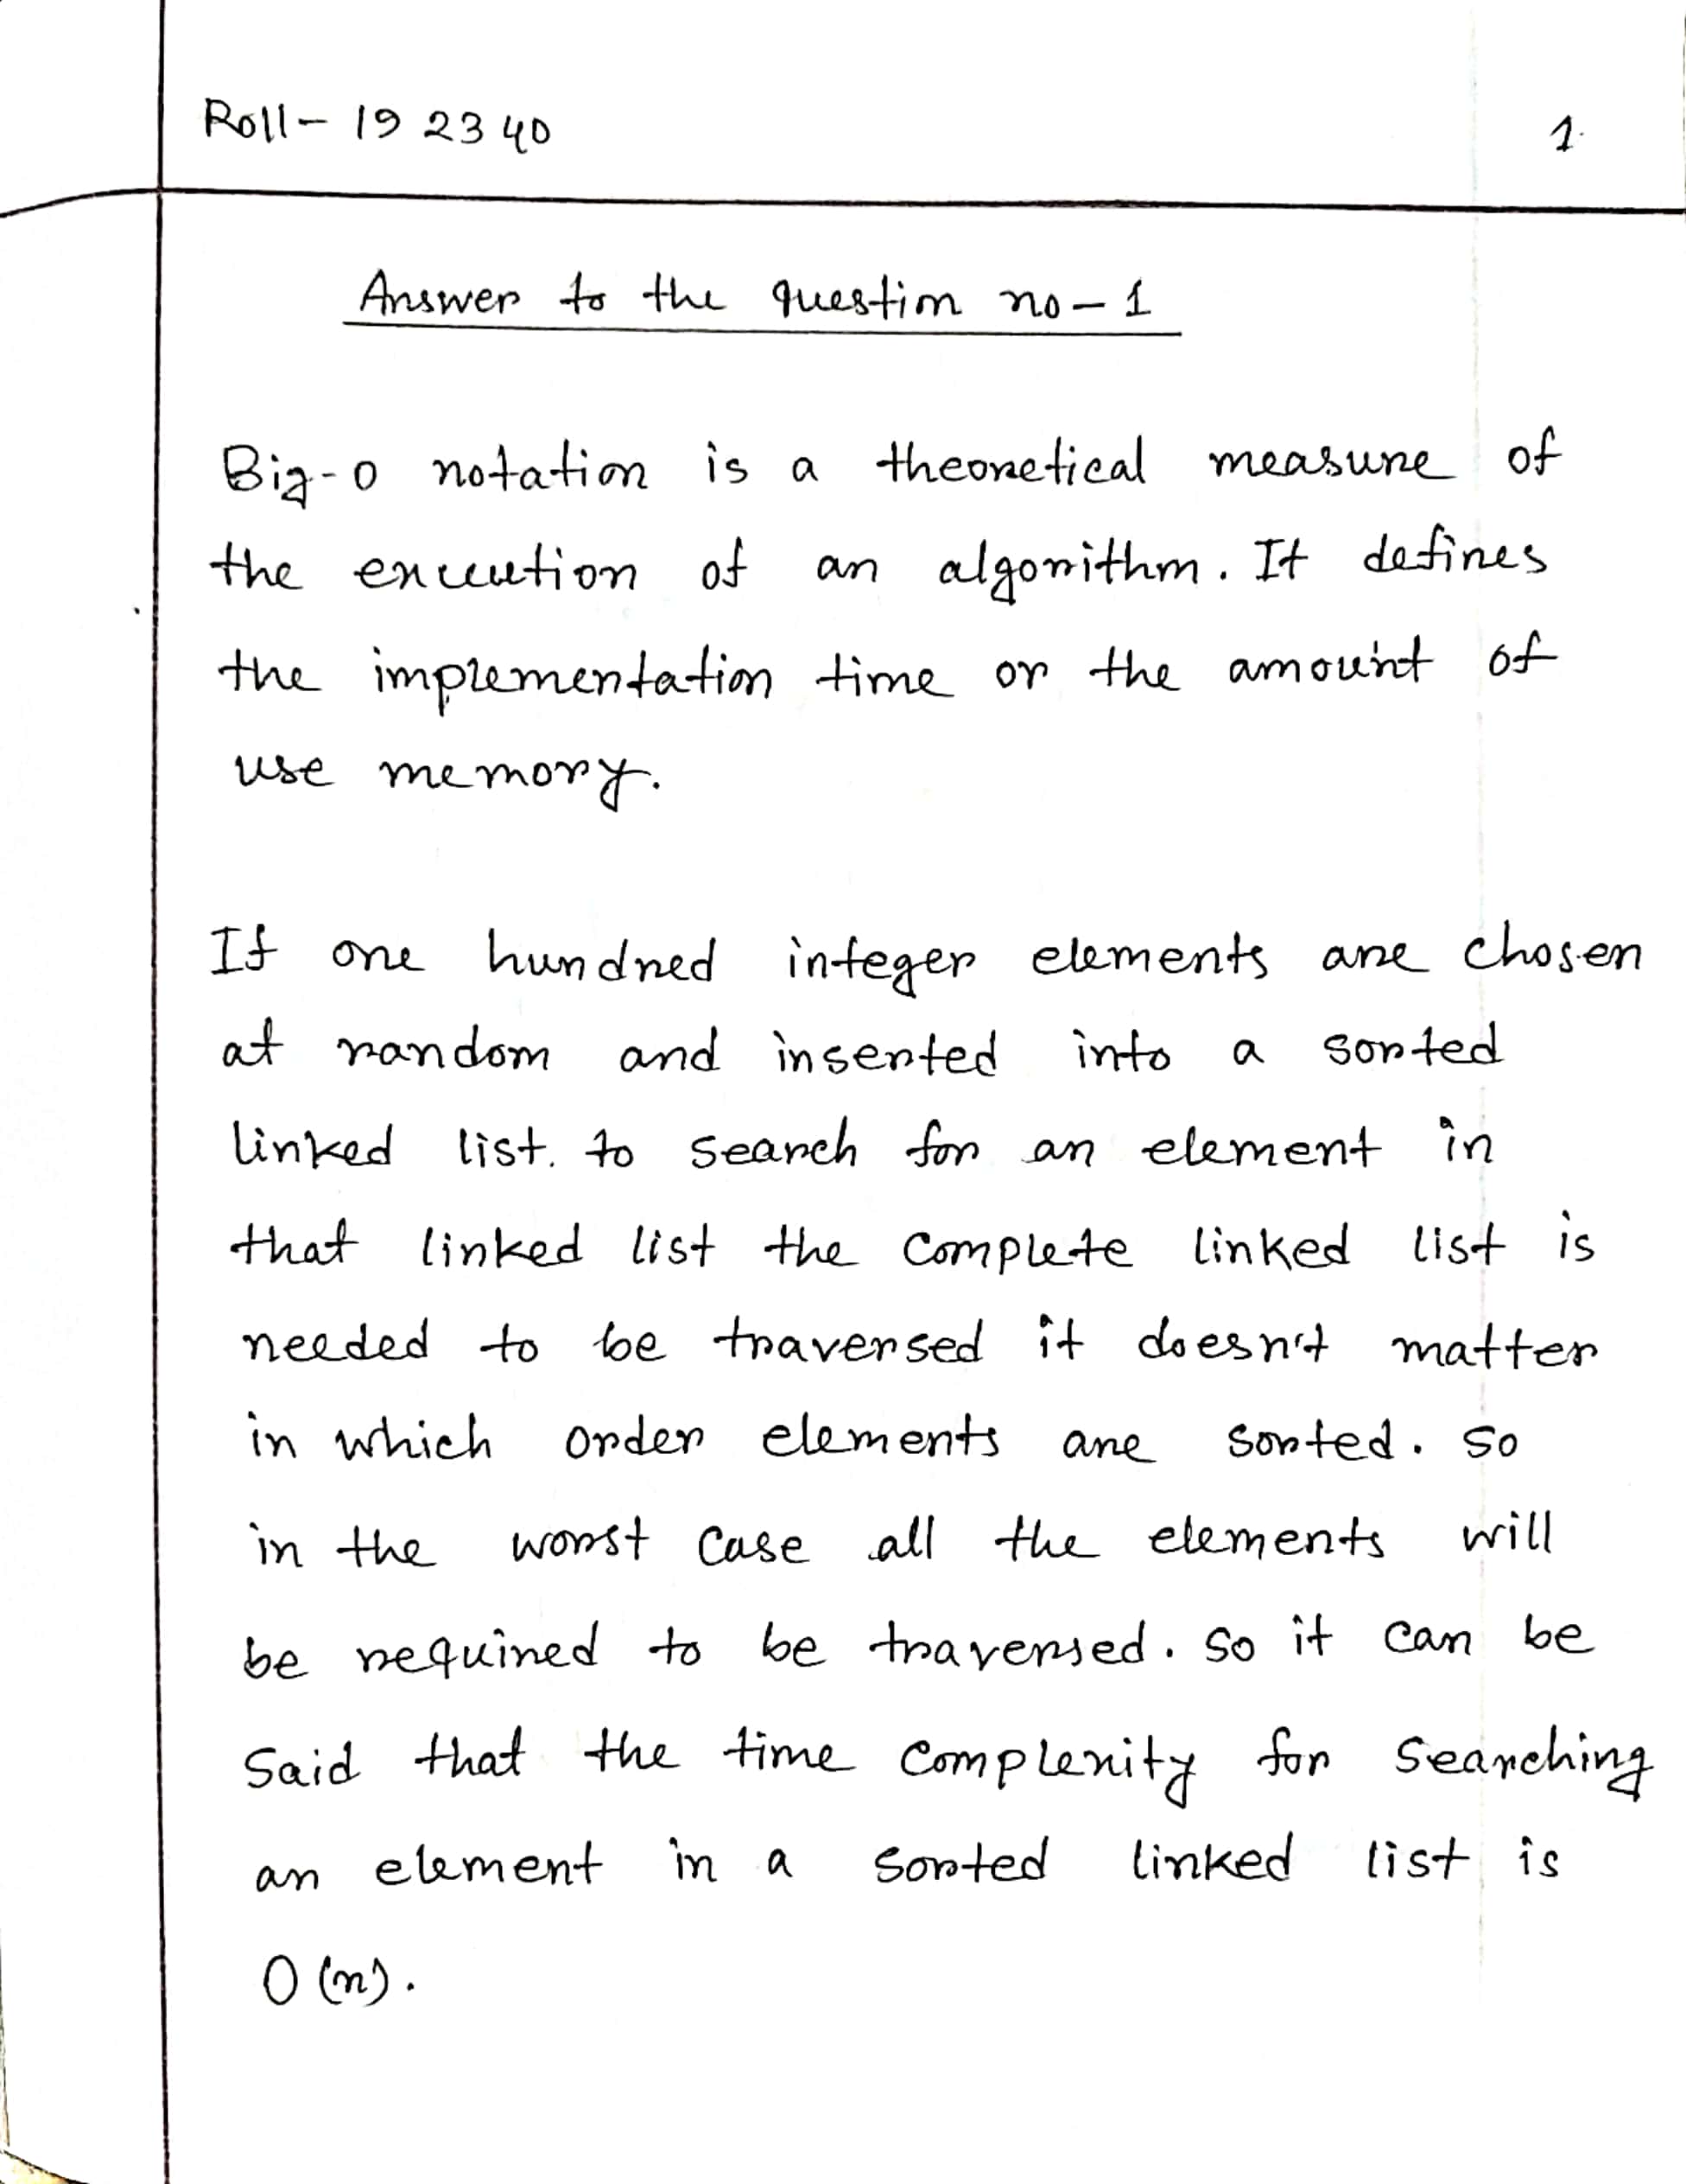 Roll- 19 23 40
1.
Answer to the question no-1
Big-O notation is a theoretical measure of
the execution of an algorithm. It defines
the implementation time or the amount of
use memory.
If one hundred integer elements are chosen
at random and inserted into a sorted
linked list. to search for an element in
that linked list the complete linked list is
needed to be traversed it doesn't matter
in which order elements are sorted. so
in the worst case all the elements will
be required to be traversed. so it can be
said that the time complexity for searching
an element in a sorted linked list is
O(n).